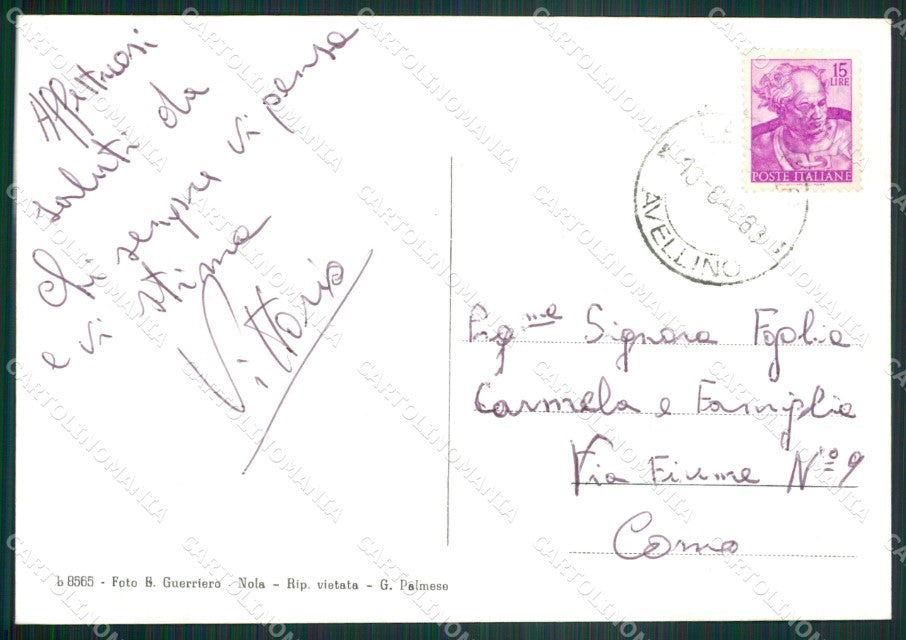 Affettuosi
saluti da
chi sempre vi pensa
e vi stima
Vittorio
15
LIRE
POSTE ITALIANE
AVELLINO
Signora Foglia
Carmela e Famiglia
Via Fiume Nº 9
Como
b 8565 - Foto B. Guerriero - Nola - Rip. vietata - G. Palmese
CARTOLINOMANIA